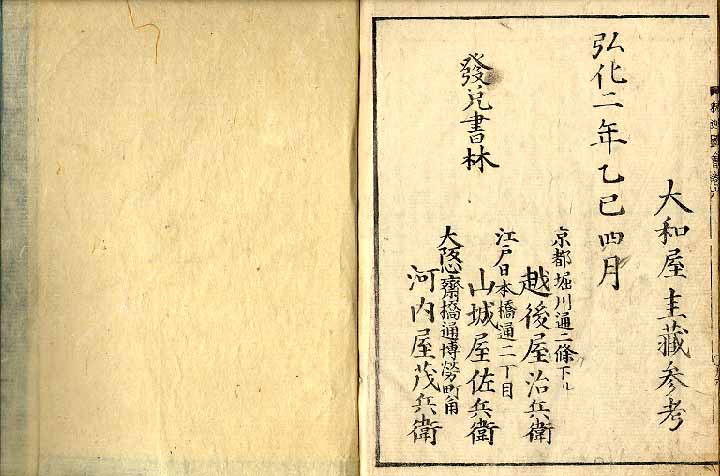 大和屋主藏参考
弘化二年乙巳四月
發兌書林
京都堀川通二條下ル
越後屋治兵衛
江戸日本橋通二丁目
山城屋佐兵衛
大阪心齋橋通博勞町角
河内屋茂兵衛